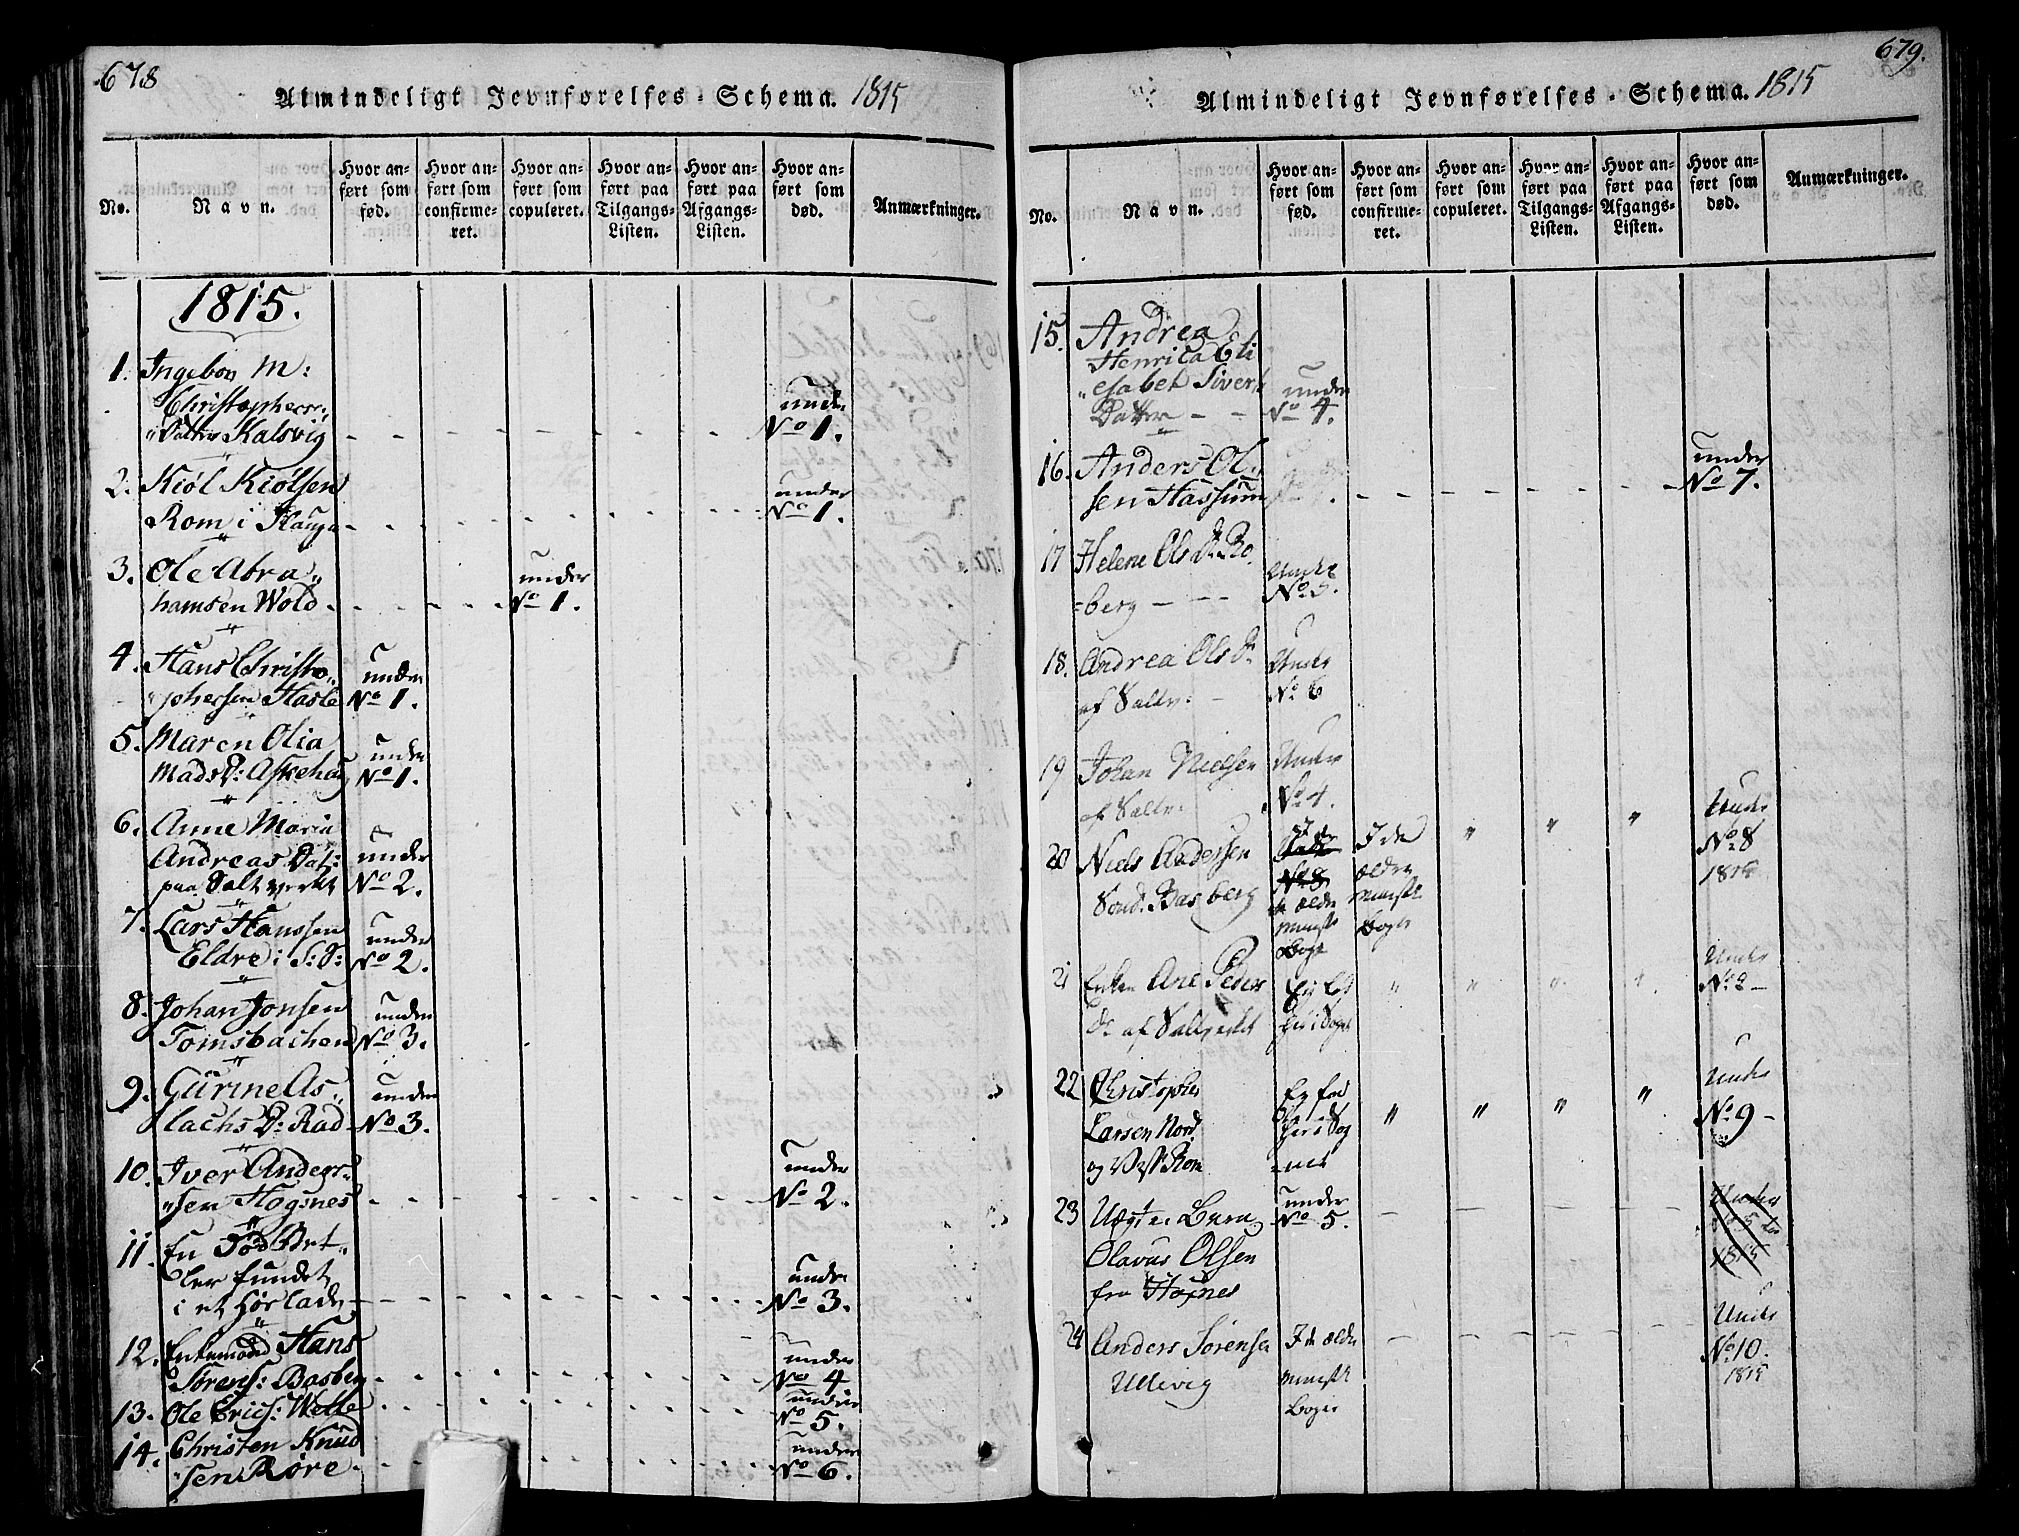 678
Almindeligt Jevnførelses-Schema. 1815
No.
Navn.
Hvor anført som fød.
Hvor anført som confirmeret.
Hvor anført som copuleret.
Hvor anført paa Tilgangs-Listen.
Hvor anført paa Afgangs-Listen.
Hvor anført som død.
Anmærkninger.
1815.
1. Ingebor M:
Christophers
Datter Kalsvig - - - - - under No 1.
2. Kiøl Kiølsen
Rom i Hauga - - - - - under No 1.
3. Ole Abra„
hamsen Wold - - - under No 1.
4. Hans Christo„
„phersen Hasle under No 1.
5. Maren Olia
Mads D: Askehaug under No 1.
6. Anne Maria
Andreas Dat:
paa Saltverket under No 2.
7. Lars Hanssen
Eldre i S: D: under No 2.
8. Johan Jonsen
Tomsbachen under No 3.
9. Gurine As„
lachs D: Rad under No 3.
10. Iver Anders„
„sen Hogsnes - - - - - under No 2.
11. En Død
ler fundet
i et Hørlade - - - - - under No 3.
12. Enkemand Hans
Sørens: Basberg - - - - - under No 4
13. Ole Erics: Welle - - - - - under No 5.
14. Christen Knud
„sen Røre - - - - - under No 6.
679.
Almindeligt Jevnførelses-Schema. 1815
No.
Navn.
Hvor anført som fød.
Hvor anført som confirmeret.
Hvor anført som copuleret.
Hvor anført paa Tilgangs-Listen.
Hvor anført paa Afgangs-Listen.
Hvor anført som død.
Anmærkninger.
15. Andrea
Henrica Eli
„esabet Sivert
Datter - - under No 4.
16. Anders Ol„
sen Hassum - - - - - under No 7.
17 Helene Ols D. Ro
=berg - - - Under No 5.
18. Andrea Ols D.
af Saltv: - Under No 6
19 Johan Nielsen
af Saltv: Under No 4.
20 Niels Andersen
Sønd. Basberg
No 8
ældre
Minist
Bog
I de
ældre
Minist.
Bøger
" " " Under
No 8
1815
21 Enken Ane Peders
D. af Saltverket
Ej fød
her i Sognet
" " " " Under
No 2 -
22 Christopher
Larsen Nord
og Vest Rom
Ej fød
her i Sog
=net
" " " " Under
No 9 -
23 Uægte Barn
Olavus Olsen
fra Hognes
under
No 5. - - - - Under
No 5
1815
24 Anders Sørensen
Ullevig
I de ældre
Minist.
Bøger
- - - - Under
No 10.
1815